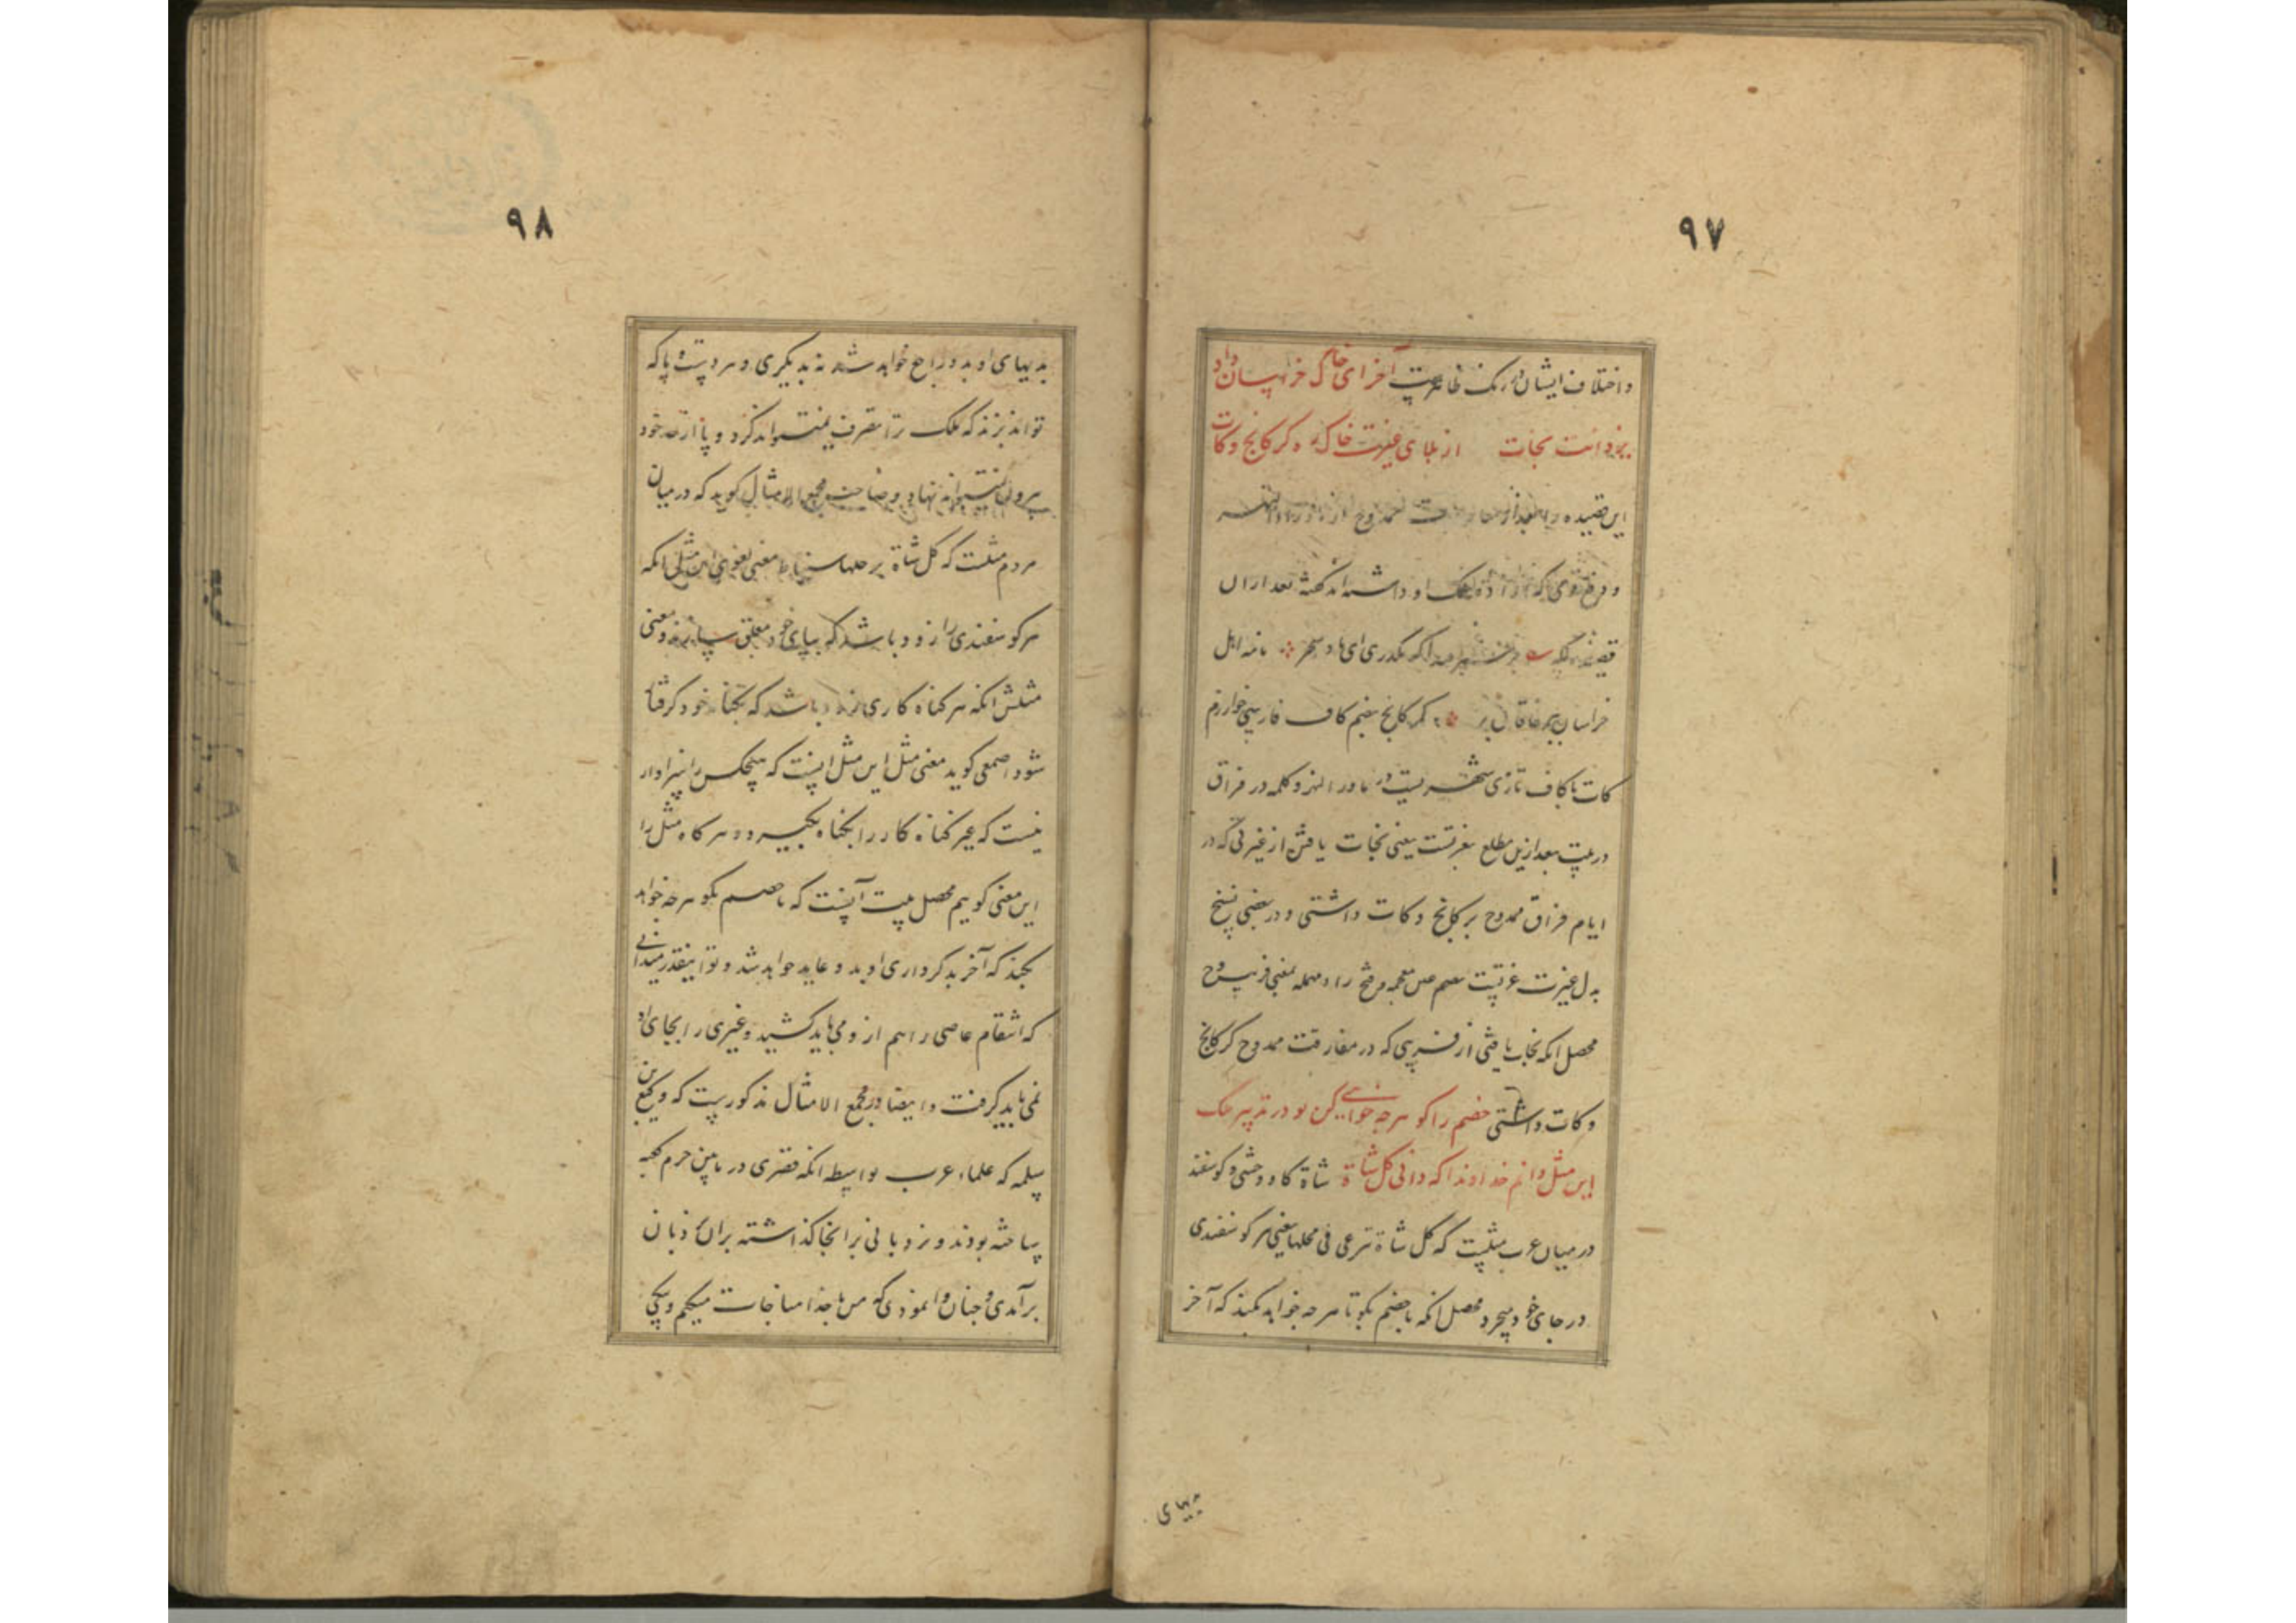 ۹۷
و اختلاف ایشان در رنک ظاهرست آخر ای خاک خراسان داد
یزدانت نجات از بلای غیرت خاک ره کرکانج و کات
این قصیده را بعد از ممدوح از ماوراءالنهر
و مرخ روی که او داشته اند کفته بعد ازان
قصیده که بر سمرقند اکر بکذری ای باد سحر نامه اهل
خراسان ببر خاقان بر کرکانج بضم کاف فارسی خوارزم
کات با کاف تازی شهریست در ماوراءالنهر و کلمه در فراق
در بیت بعد ازین مطلع بغربتست یعنی نجات یافتن از غیرتی که در
ایام فراق ممدوح بر کرکانج و کات داشتی و در بعضی نسخ
بدل غیرت غربتست بضم غین معجمه و فتح راء مهمله بمعنی
محصل انکه نجات یافتی از که در مفارقت ممدوح کرکانج
و کات داشتی خصم را کو هرچه خواهی کن تو در تدبیر ملک
این مثل دانم خداوندا که دانی کل شاة شاة کاو وحشی و کوسفند
در میان عرب مثلیست که کل شاة ترعی فی محلها یعنی هر کوسفندی
در جای خود میچرد محصل انکه با خصم بکو تا هرچه خواهد بکند که آخر
بدیهای
۹۸
بدیهای او بدو راجع خواهد شد نه بدیکری و هر دست و پا که
تواند بزند که ملک ترا تصرف نمیتواند کرد و پا از حد خود
بیرون نمیتواند نهاد و صاحب مجمع الامثال کوید که در میان
مردم مثلست که کل شاة برجلها معنی لغوی این مثل انکه
هر کوسفندی را زود باشد که بپای خود معلق سازند و معنی
مثلش انکه هر کناه کاری زود باشد که بکناه خود کرفتار
شود اصمعی کوید معنی مثل این مثل اینست که هیچکس را سزاوار
نیست که غیر کناه کار را بکناه بکیرد و هر کاه مثل را
این معنی کوییم محصل بیت آنست که با خصم بکو هرچه خواهد
بکند که آخر بد کرداری او بدو عاید خواهد شد و تو اینقدر میدانی
که انتقام عاصی را هم از و می باید کشید و غیری را بجای او
نمی باید کرفت و ایضا در مجمع الامثال مذکورست که وکیع بن
سلمه که علماء عرب بواسطه انکه قصری در پایین حرم کعبه
ساخته بودند و نردبانی بر انجا کذاشته بران نردبان
برآمدی و چنان وا نمودی که من با خدا مناجات میکنم و یکی